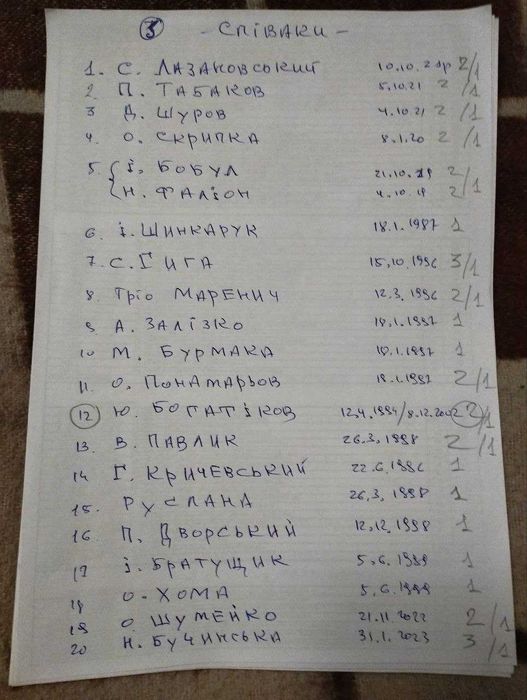 3 - СПІВАКИ -
1. С. ЛАЗАНОВСЬКИЙ 10.10. 2/1
2 П. ТАБАКОВ 5.10.21 2/1
3 Д. ЩУРОВ 4.10.21 2/1
4. О. СКРИПКА 8.1.20 2/1
5. І. БОБУЛ 21.10.19 2/1
Н. ФАЛІОН 4.10.19 2/1
6. І. ШИНКАРУК 18.1.1997 1
7. С. ГИГА 15.10.1996 3/1
8. Тріо МАРЕНИЧ 12.3.1996 2/1
9. А. ЗАЛІЗКО 18.1.1997 1
10 М. БУРМАКА 18.1.1997 1
11. О. ПОНАМАРЬОВ 18.1.1997 2/1
12 Ю. БОГАТІКОВ 12.4.1994/8.12.2002 2/1
13. В. ПАВЛИК 26.3.1998 2/1
14 Г. КРИЧЕВСЬКИЙ 22.6.1996 1
15. РУСЛАНА 26.3.1998 1
16 П. ДВОРСЬКИЙ 12.12.1998 1
17 І. БРАТУЩИК 5.6.1999 1
18 О. ХОМА 5.6.1999 1
19 О ШУМЕЙКО 21.11.2022 2/1
20 Н. БУЧИНСЬКА 31.1.2023 3/1